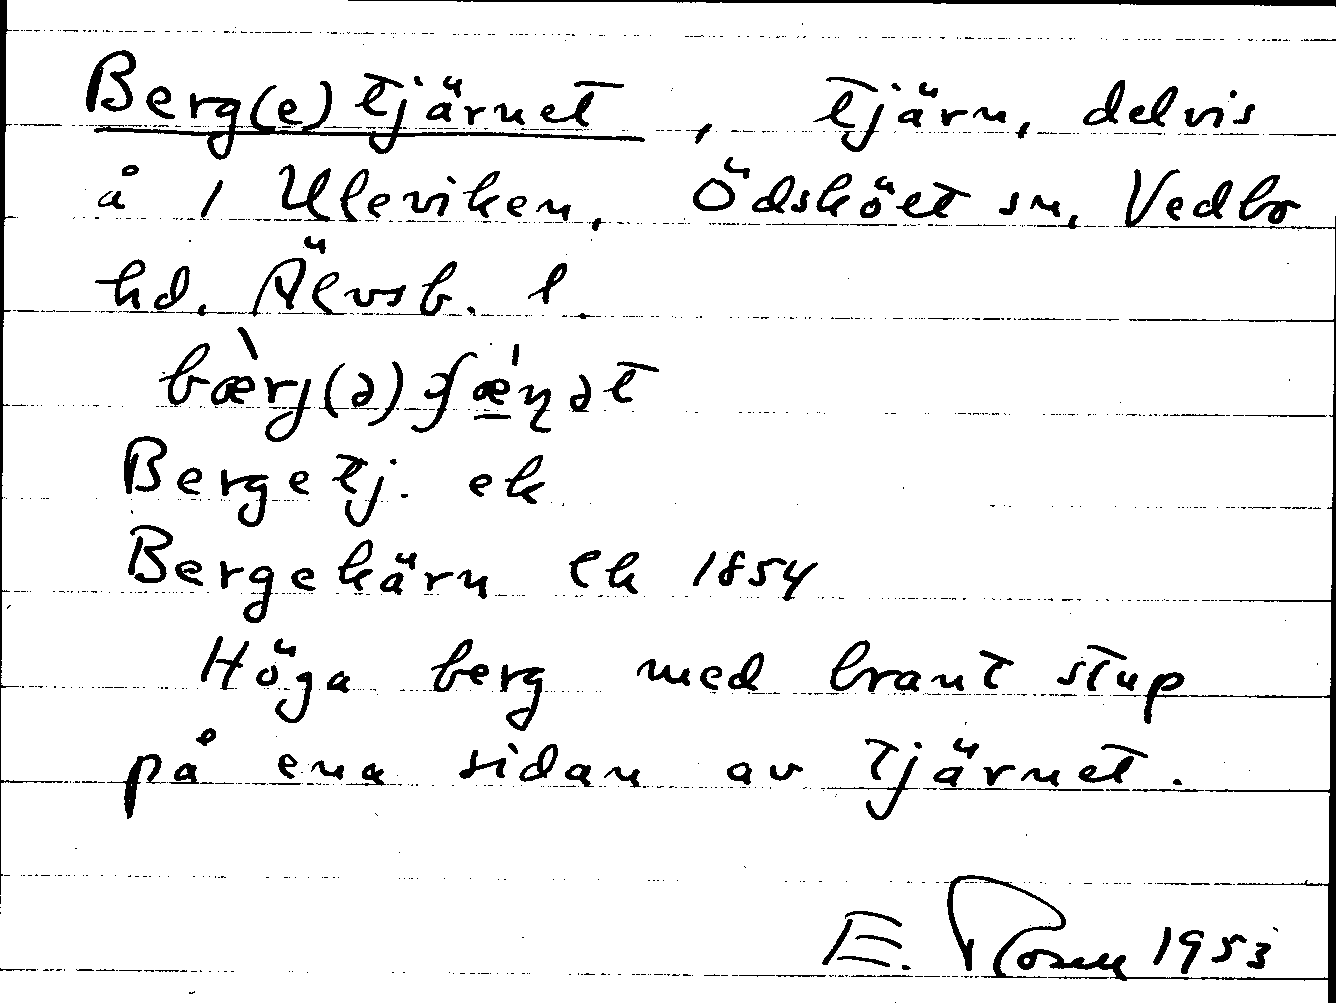 Berg(e)tjärnet, tjärn, delvis
å 1 Uleviken, Ödsköłt sn, Vedbo
hd. Älvsb. l.
bæ̀rj(ə)ʃæ̍ṇət
Bergetj. ek
Bergekärn Ek 1854
Höga berg med brant stup
på ena sidan av tjärnet.
E. Rosell 1953